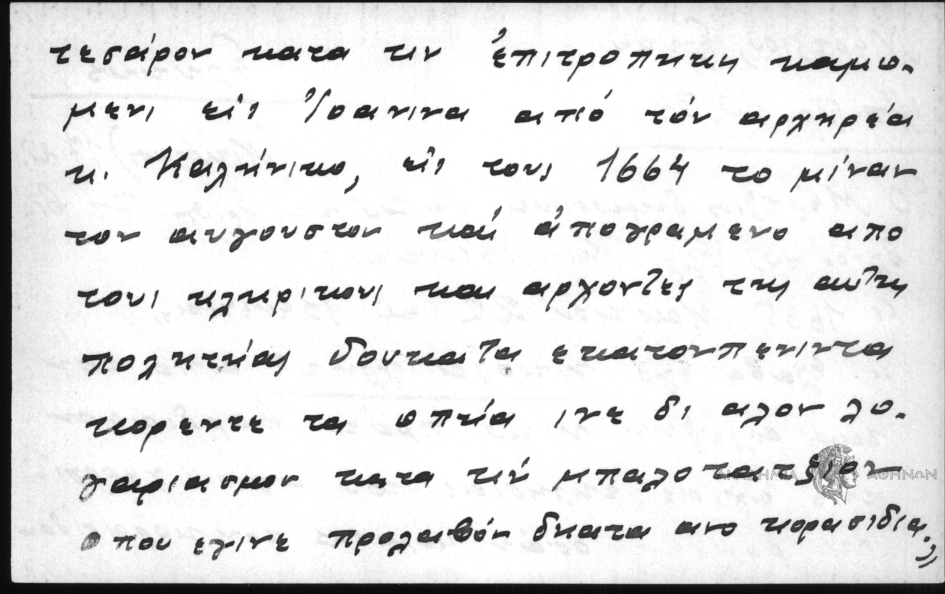 τεσάρον κατα τιν ἐπιτροπηκη καμο-
μενι εἰς Ἰοανινα από τόν αρχηρέα
κ. Καλήνικο, εἰς τους 1664 το μίναν
τον αυγουστον καί ἀπογραμενο απο
τους κληρικους και αρχοντες της αὐτης
πολητείας δουκατα εκατονπενιντα
κορεντε τα οπεία ινε δι αλον λο-
γαριασμον κατα τιν μπαλοτατζιον
οπου εγινε προλαβόν δκατα ανο κορασιδια."
ΑΘΗΝΩΝ